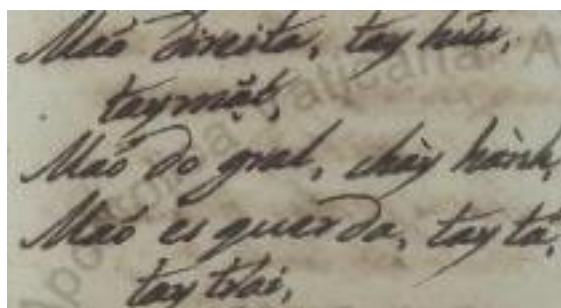 Maõ direita, tay hữu,
tay mặt,
Maõ do gral, chày hành,
Maõ esquerda, tay tả,
tay trái,